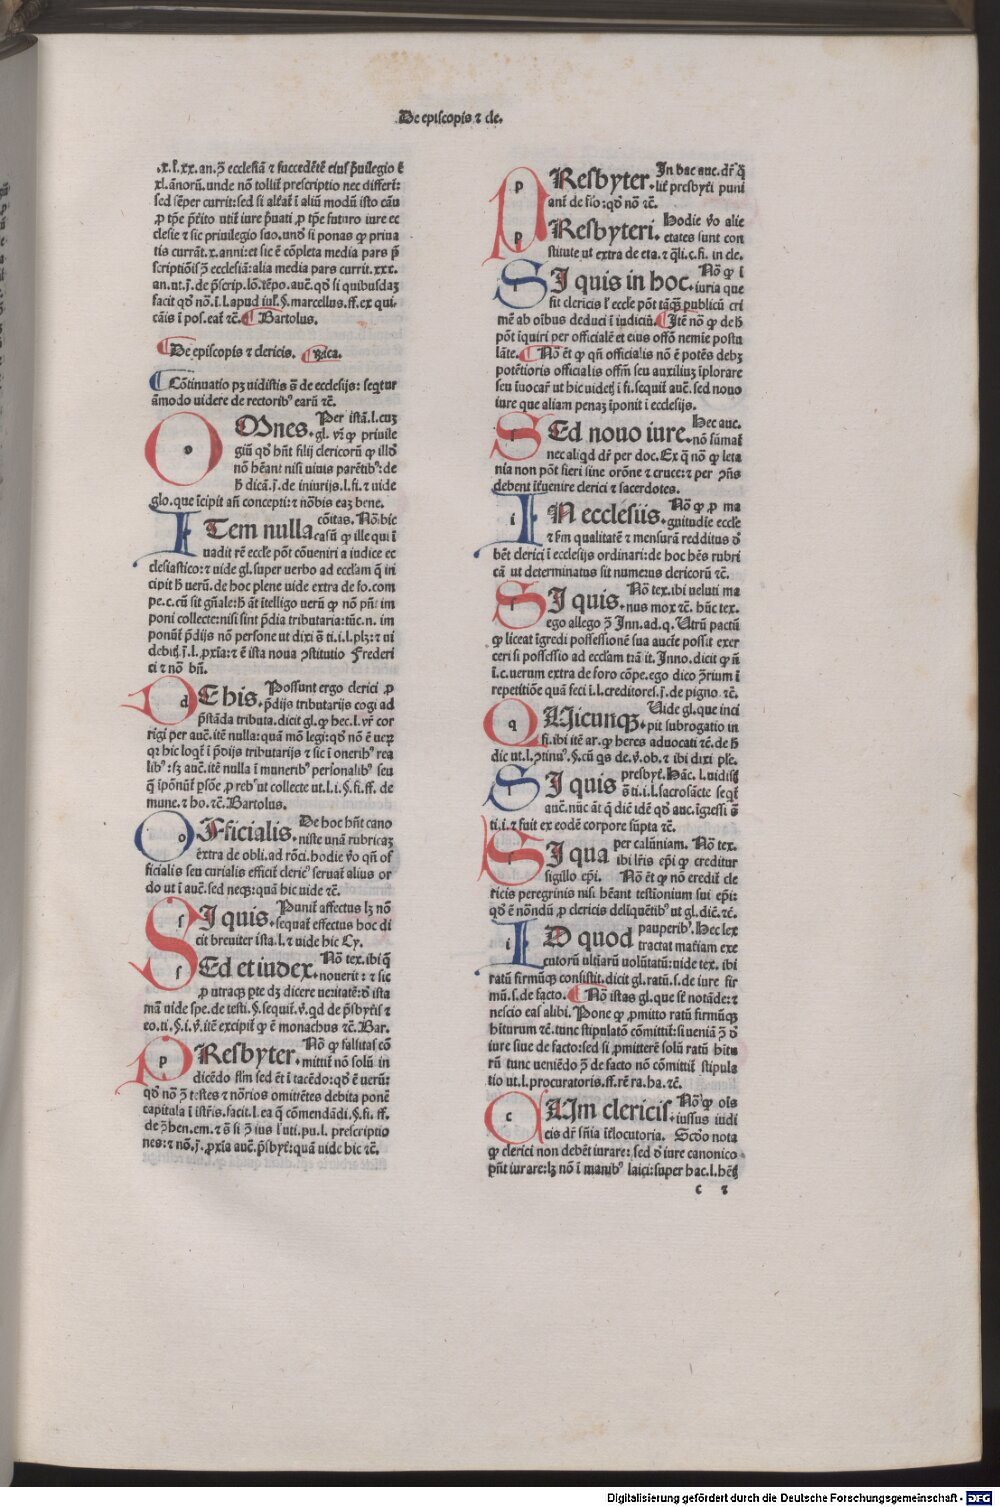 De episcopis ⁊ cle.
.x.l̄.xx.an.ꝯ̄ ecclesiā ⁊ succedēte eiuſ p̄uilegio ē
xl.ānorū.unde nō tollit̄ prescriptio nec differt̄:
sed sēper currit:sed si alēat̄ ī aliū modū isto cāu
ꝓ tp̄e p̄t̄ito utit̄ iure p̄uati ꝓ tp̄e futuro iure ec
clesie ⁊ sic priuilegio suo. unđ si ponas ꝙ priua
tis currāt.x.anni:et sic ē cōpleta media pars p̄
scriptiōis ꝯ̄ ecclesiā:alia media pars currit.xxx.
an.ut.j̄.de p̄scrip.lō.tēpo.auc̄.qđ si quibusdaʒ
facit qđ nō.ī.l.apud iul̄.§.marcellus.ff.ex qui.
cāis ī pos.eat̄ ⁊c̄. Bartolus.
De episcopis ⁊ clericis. Rrica.
Cōtinuatio pꝫ uidistis s̄ de ecclesijs: seqt̄ur
āmodo uidere de rectoribꝰ earū ⁊c̄.
OMnes. Per istā.l.cuʒ
gl. vr̄ ꝙ priuile
giū qđ hn̄t filij clericorū ꝙ illđ
nō hēant nisi uiuis parētibꝰ:de
ħ dicā.j̄.de iniurijs.l.fi.⁊ uide
glo.que īcipit añ concepti:⁊ nōbis eaʒ bene.
ITem nulla cōitas. Nō.hic
casū ꝙ ille qui ī
uadit rē eccl̄e pōt cōueniri a iudice ec
clesiastico:⁊ uide gl.super verbo ad eccl̄am q̄ in
cipit ħ verū.de hoc plene uide extra de fo.com
pe.c.cū sit gn̄ale:ħ āt ītelligo verū ꝙ nō pn̄t im
poni collecte:nisi sint p̄dia tributaria:tūc.n.im
ponūt̄ p̄dijs nō persone ut dixi s̄ ti.i.l.plꝫ:⁊ ui
debit̄.j̄.l.pxīa:⁊ ē ista noua ꝯstitutio Frederi
ci ⁊ nō bn̄.
DE his. Possunt ergo clerici ꝓ
p̄dijs tributarijs cogi ad
p̄stāda tributa.dicit gl.ꝙ hec.l.vr̄ cor
rigi per auc̄.itē nulla:quā mō legi:qđ nō ē ueꝝ
qꝛ hic loqt̄ ī p̄dijs tributarijs ⁊ sic ī oneribꝰ rea
libꝰ:sꝫ auc̄.itē nulla ī muneribꝰ personalibꝰ seu
q̄ īponūt̄ p̄sōe ꝓ rebꝰ ut collecte ut.l.i.§.fi.ff.de
mune.⁊ ho.⁊c̄.Bartolus.
OFficialis. De hoc hn̄t cano
niste unā rubricaʒ
extra de obli.ad rōci.hodie v̄o qn̄ of
ficialis seu curialis efficit̄ clericꝰ seruat̄ alius or
do ut ī auc̄.sed neqꝫ:quā hic uide ⁊c̄.
SI quis. Punit̄ affectus lꝫ nō
sequat̄ effectus hoc di
cit breuiter ista.l.⁊ uide hic Cy.
SEd et iudex. Nō tex.ibi q̄
nouerit:⁊ sic
ꝓ utraqꝫ p̄te dꝫ dicere ueritatē:đ ista
mā uide spe.de testi.§.sequit̄.v̄.qđ de p̄sbyt̄is ⁊
eo.ti.§.i.v̄.itē excipit̄ ꝙ ē monachus ⁊c̄. Bar.
PResbyter. Nō ꝙ falsitas cō
mittit̄ nō solū in
dicēdo flm̄ sed ēt ī tacēdo:qđ ē uerū:
qđ nō ꝯ̄ testes ⁊ nōrios omitētes debita ponē
capitula ī istr̄is.facit.l.ea q̄ cōmendādi.§.fi.ff.
de ꝯ̄hen.em.⁊ s̄ si ꝯ̄ ius l̄ uti.pu.l.prescriptio
nes:⁊ nō.j̄.pxīa auc̄.p̄sbyt̄:quā uide hic ⁊c̄.
PResbyter. In hac auc.dr̄ q̄
lit̄ presbyt̄i puni
ant̄ de fīo:qđ nō ⁊c̄.
PResbyteri. Hodie v̄o alie
etates sunt con
stitute ut extra de eta.⁊ q̄li.c.fi.in cle.
SI quis in hoc. Nō ꝙ ī
iuria que
fit clericis l̄ eccl̄e pōt tāqꝫ publicū cri
mē ab oībus deduci ī iudiciū. Itē nō ꝙ de ħ
pōt īquiri per officialē et eius offō nemīe postu
lāte. Nō ēt ꝙ qn̄ officialis nō ē potēs debꝫ
potētioris officialis offm̄ seu auxiliuʒ īplorare
seu īuocar̄ ut hic uidet̄ ī fi.sequit̄ auc̄.sed nouo
iure que aliam penaʒ īponit ī ecclesijs.
SEd nouo iure. Hec auc.
nō sūmat̄
nec aliqđ dr̄ per doc. Ex q̄ nō ꝙ leta
nia non pōt fieri sine orōne ⁊ cruce:⁊ per ꝯn̄s
debent īt̄uenire clerici ⁊ sacerdotes.
IN ecclesiis. Nō ꝙ ꝓ ma
gnitudīe eccl̄e
⁊ ẜm qualitatē ⁊ mensurā redditus đ
bēt clerici ī ecclesijs ordinari:de hoc hēs rubri
cā ut determinatus sit numerus clericorū ⁊c̄.
SI quis. Nō tex.ibi ueluti ma
nus mox ⁊c̄. hūc tex.
ego allego ꝯ̄ Inn.ad.q. Utrū pactū
ꝙ liceat īgredi possessionē sua auctē possit exer
ceri si possessio ad eccl̄am trās̄it. Inno.dicit ꝙ n̄
ī.c.uerum extra de foro cōpe.ego dico ꝯ̄rium ī
repetitiōe quā feci ī.l.creditores.j̄.de pigno. ⁊c̄.
QUicunqꝫ. Uide gl.que inci
pit subrogatio in
fi.ibi itē ar.ꝙ heres aduocati ⁊c̄.de ħ
dic ut.l.ꝯtinuꝰ.§.cū qs de.v̄.ob.⁊ ibi dixi pl̄e.
SI quis presbyt̄. Hāc.l.uidist̄
s̄ ti.i.l.sacrosācte seqt̄
auc̄.nūc āt q̄ dic̄ idē qđ auc̄.īgressi s̄
ti.i.⁊ fuit ex eodē corpore sūpta ⁊c̄.
SI qua per calūniam. Nō tex.
ibi lr̄is ep̄i ꝙ creditur
sigillo ep̄i. Nō ēt ꝙ nō credit̄ cle
ricis peregrinis nisi hēant testīonium sui ep̄i:
qđ ē nōndū ꝓ clericis deliquētibꝰ ut gl.dic̄.⁊c̄.
ID quod pauperibꝰ. Hec lex
tractat mat̄iam exe
cutorū ultīarū uolūtatū:uide tex. ibi
ratū firmūqꝫ consistit.dicit gl.ratū.s.de iure fir
mū.s.de facto. Nō istas gl.que sē notāde:⁊
nescio eas alibi. Pone ꝙ ꝓmitto ratū firmūqꝫ
hiturum ⁊c̄.tunc stipulatō cōmittit̄:si ueniā ꝯ̄ đ
iure siue de facto:sed si ꝓmitterē solū ratū hitu
rū tunc ueniēdo ꝯ̄ de facto nō cōmittit̄ stipula
tio ut.l.procuratoris.ff.rē ra.ha.⁊c̄.
CUm clericis. Nō ꝙ oīs
iussus iudi
cis dr̄ sn̄ia īt̄locutoria. Scđo nota
ꝙ clerici non debēt iurare:sed đ iure canonico
pn̄t iurare:lꝫ nō ī manibꝰ laici:super hac.l.hēt̄
c 2
Digitalisierung gefördert durch die Deutsche Forschungsgemeinschaft - DFG